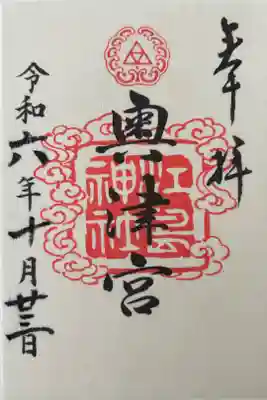 奉拝
奥津宮
江島神社
令和六年十月廿三日